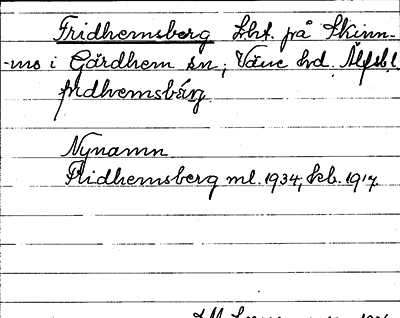 Fridhemsberg Lht. på Skinn-
-mo i Gärdhem sn; Väne hd. Älfsb.l.
fridhemsbärg
Nynamn
Fridhemsberg ml. 1934, kb. 1917